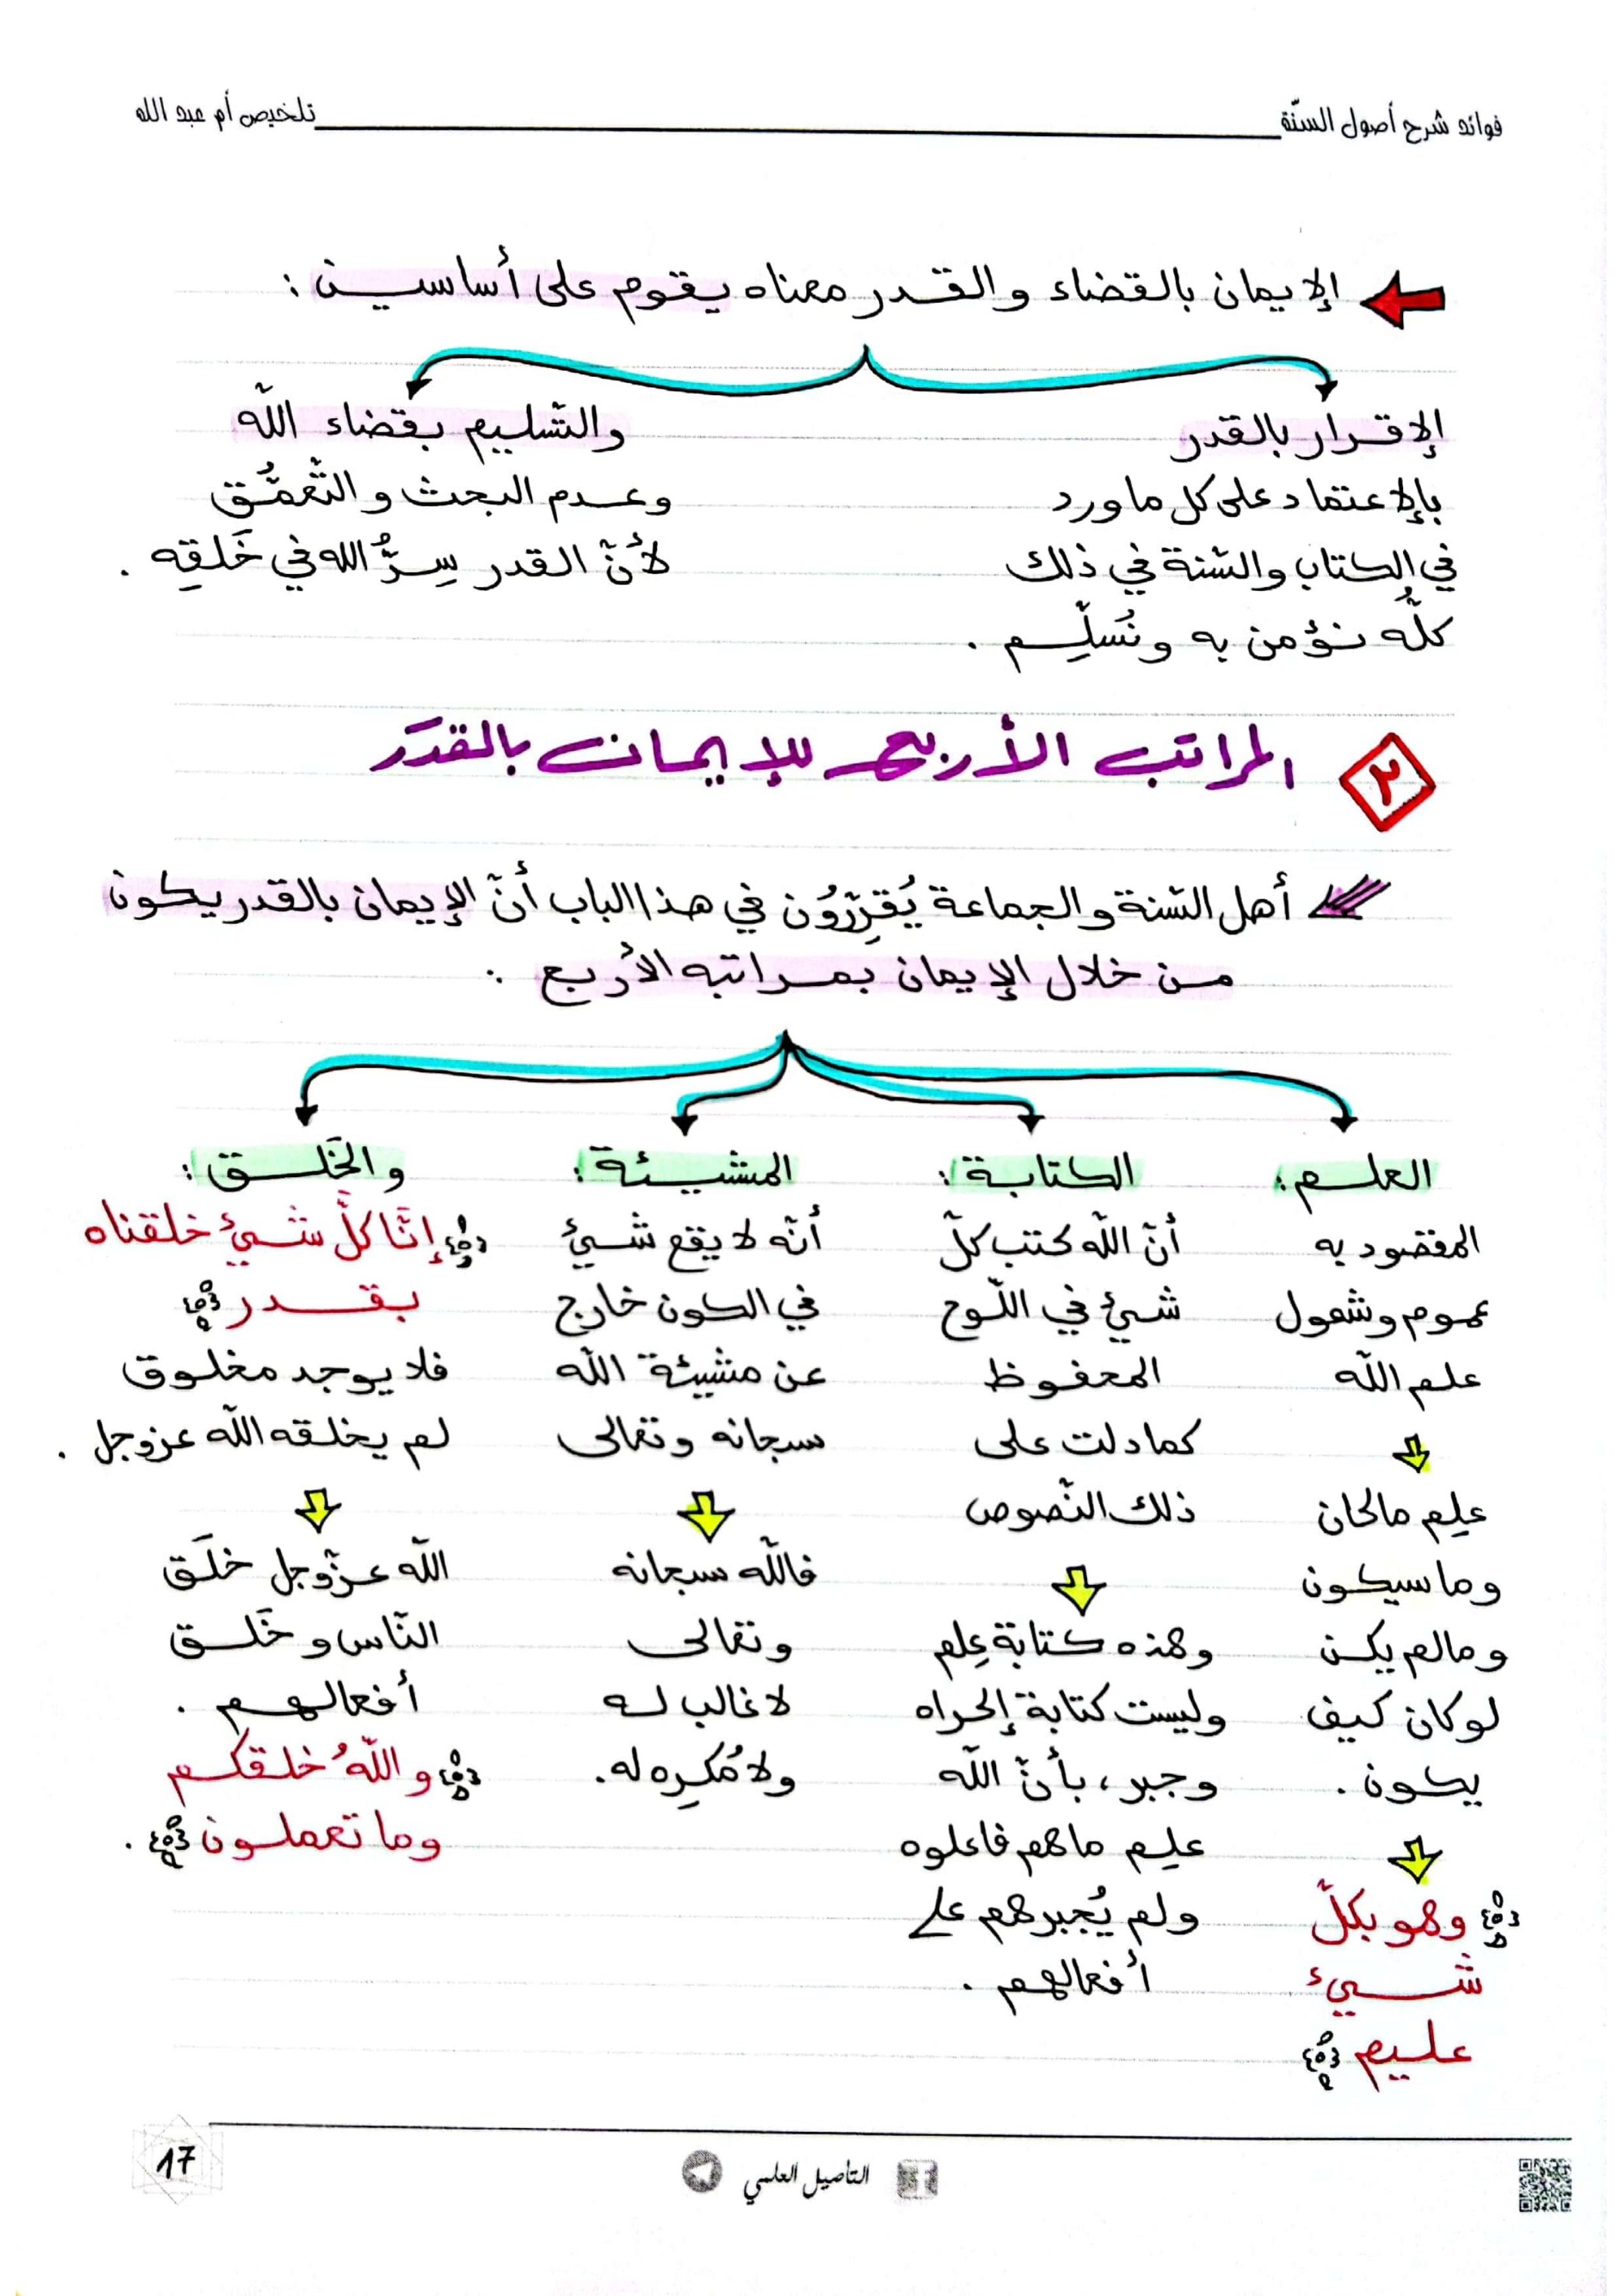 فوائد شرح أصول السنّة
تلخيص أم عبد الله
الإيمان بالقضاء والقدر معناه يقوم على أساسين :
الإقرار بالقدر
بالاعتماد على كل ما ورد
في الكتاب والسّنة في ذلك
كلّه نؤمن به ونُسلِّم .
والتسليم بقضاء اللّه
وعدم البحث والتّعمُّق
لأنّ القدر سِرُّ الله في خَلقِه .
٢ المراتب الأربع للإيمان بالقدَر
أهل السّنة والجماعة يُقرِّرُون في هذا الباب أنّ الإيمان بالقدر يكون
من خلال الإيمان بمراتبه الأربع :
العلم :
المقصود به
عموم وشمول
علم اللّه
علِم ما كان
وما سيكون
وما لم يكن
لو كان كيف
يكون .
﴿وهو بكلّ
شيء
عليم﴾
الكتابة :
أنّ اللّه كتب كلّ
شيئ في اللّوح
المحفوظ
كما دلت على
ذلك النّصوص
وهذه كتابة عِلم
وليست كتابة إكراه
وجبر ، بأنّ اللّه
علِم ما هم فاعلوه
ولم يُجبرهم على
أفعالهم .
المشيئة :
أنّه لا يقع شيئ
في الكون خارج
عن مشيئة اللّه
سبحانه وتعالى
فاللّه سبحانه
وتعالى
لا غالب له
ولا مُكرِه له .
والخَلق :
﴿إنّا كلَّ شيئ خلقناه
بقدر﴾
فلا يوجد مخلوق
لم يخلقه اللّه عزوجل .
اللّه عزّوجل خلَق
النّاس وخَلق
أفعالهم .
﴿واللّهُ خلقكم
وما تعملون﴾ .
التأصيل العلمي
17